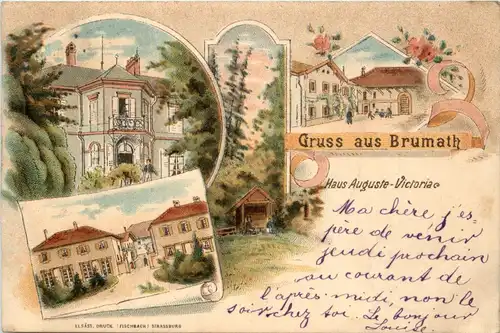 Gruss aus Brumath
Haus Auguste-Victoria
Ma chère j'es-
père de venir
jeudi prochain
au courant de
l'après-midi, non le
soir chez toi. Le bonjour
Louise
ELSÄSS. DRUCK. (FISCHBACH) STRASSBURG